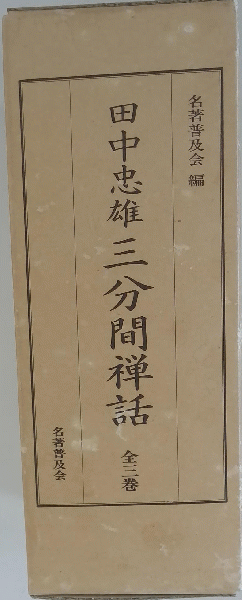 名著普及会 編
田中忠雄 三分間禅話 全三巻
名著普及会